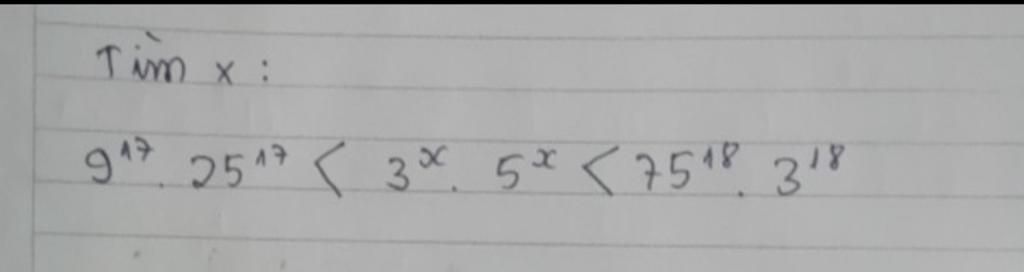 Tìm x :
9¹⁷ . 25¹⁷ < 3ˣ . 5ˣ < 75¹⁸ . 3¹⁸